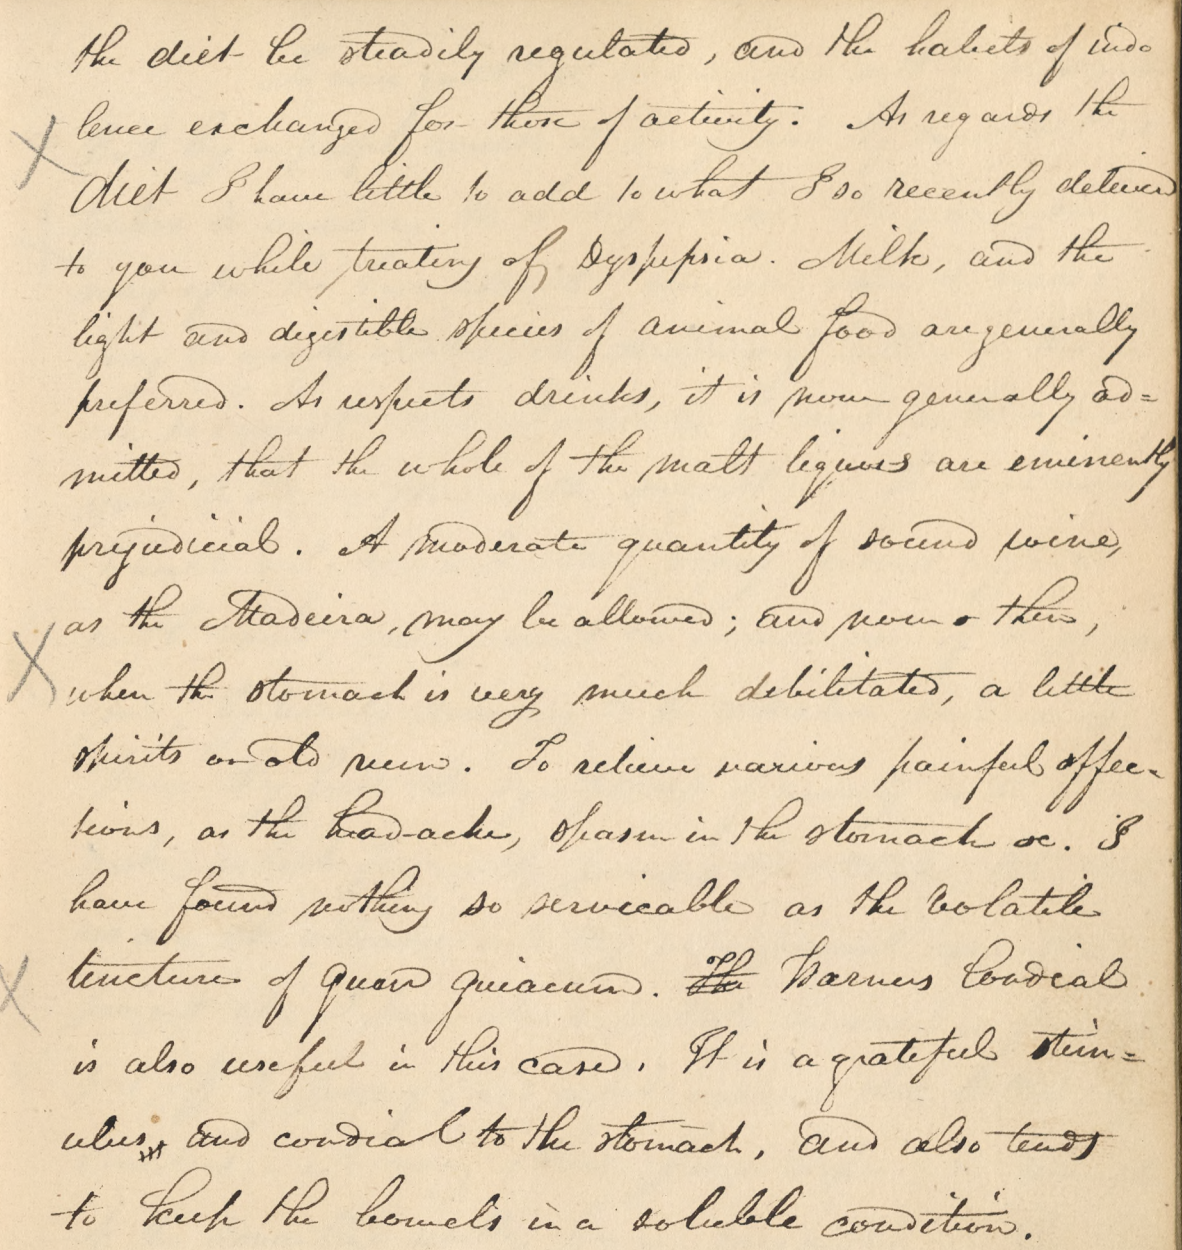 the diet be steadily regulated, and the habits of indo
lence exchanged for those of activity. As regards the
diet I have little to add to what I so recently delivered
to you while treating of Dyspepsia. Milk, and the
light and digestible species of animal food are generally
preferred. As respects drinks, it is now generally ad=
mitted, that the whole of the malt liquors are eminently
prejudicial. A moderate quantity of sound wine,
as the Madeira, may be allowed; and now & then,
when the stomach is very much debilitated, a little
spirits or old rum. To relieve various painful affec-
tions, as the head-ache, spasm in the stomach &c. I
have found nothing so servicable as the volatile
tincture of gum guiacum. The Warners Cordial
is also useful in this case. It is a grateful stim=
ulus, and cordial to the stomach, and also tends
to keep the bowels in a soluble condition.